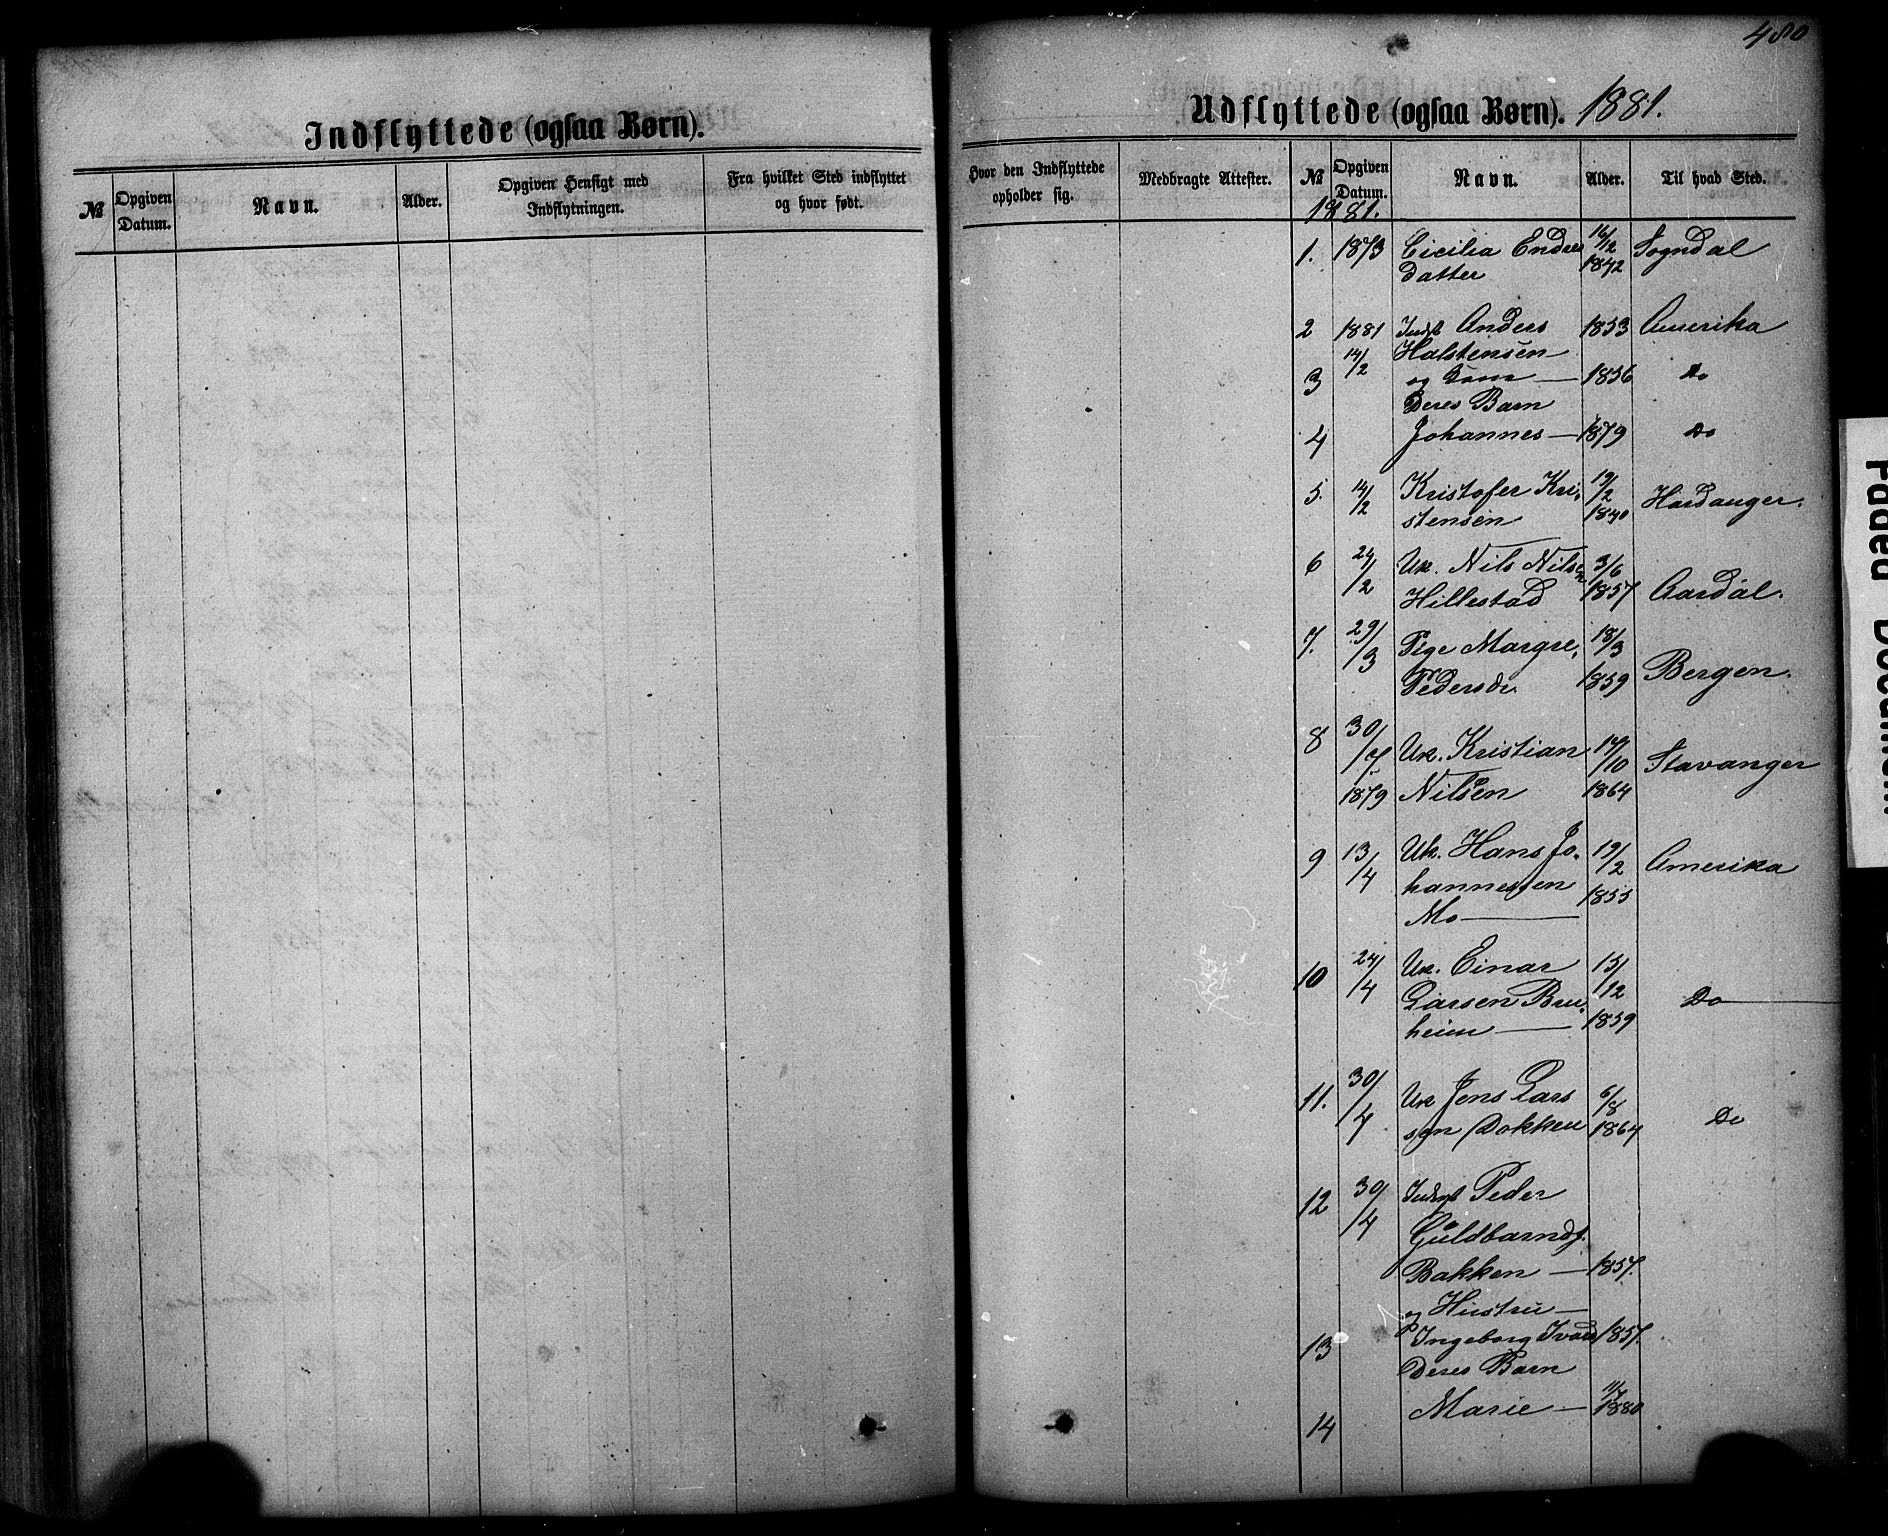 480
Indflyttede (ogsaa Børn).
№ Opgiven Datum. Navn. Alder. Opgiven Hensigt med Indflytningen. Fra hvilket Sted indflyttet og hvor født.
Udflyttede (ogsaa Børn). 1881.
Hvor den Indflyttede opholder sig. Medbragte Attester. № Opgiven Datum. Navn. Alder. Til hvad Sted.
1881.
1. 1873 Cicilia Endres 16/12 Sogndal
datter 1842
2 1881 Indst Anders 1853 Amerika
14/2 Halstensen
3 og Kone — 1856 Do
Deres Barn
4 Johannes — 1879 Do
5. 14/2 Kristofer Kri- 19/2 Hardanger.
stensen 1840
6 24/2 Uk. Nils Nilsen 3/6
Hillestad 1857 Aardal.
7. 29/3 Pige Margre. 18/3
Pedersdr 1859 Bergen.
8 30/7 Uk. Kristian 14/10 Stavanger
1879 Nilsen 1864
9 13/4 Uk. Hans Jo- 19/2 Amerika
hannessen 1855
Mo —
10 24/4 Uk. Einar 15/12
Larsen Bru- Do
heim — 1859
11. 30/4 Uk Jens Lars 6/8
sen Dokken 1864 Do
12 30/4 Indst Peder
Guldbrands.
Bakken — 1857.
og Hustru —
13 Ingeborg Ivars 1857.
Deres Barn
14 Marie — 11/7 1880
Paded Document